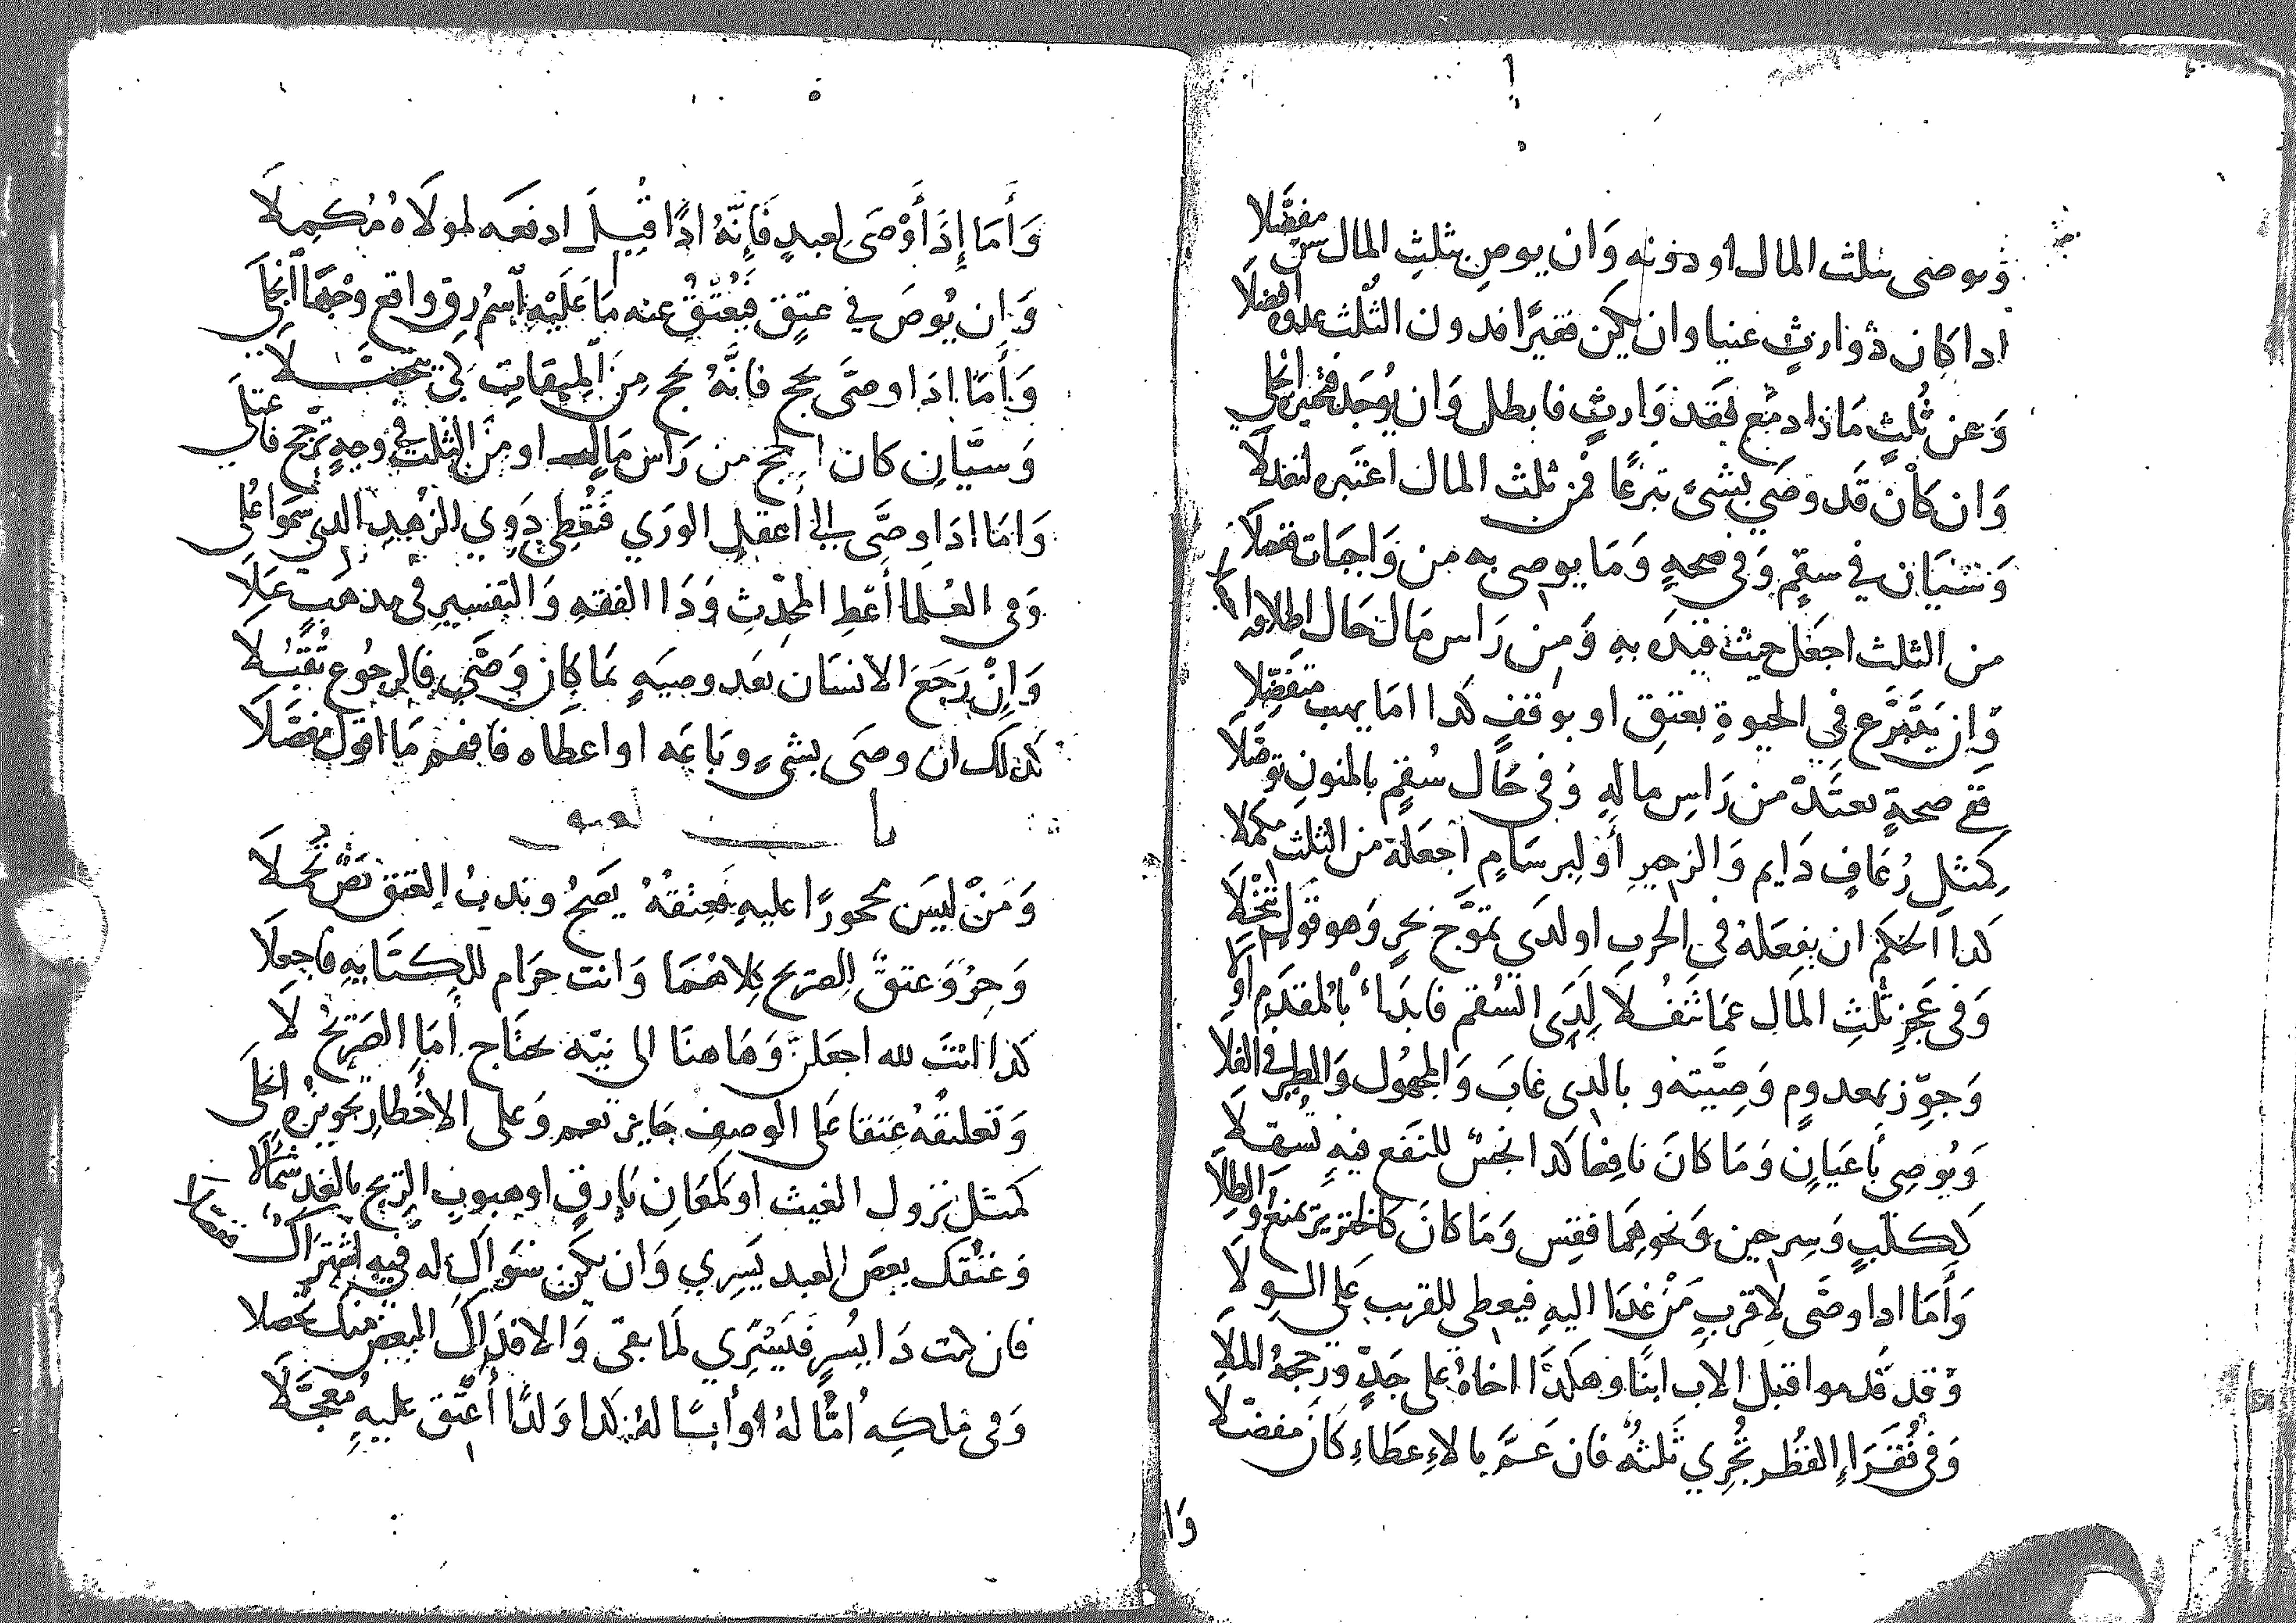 ويوصى بثلث المال او دونه وان يوصِ بثلثِ المال سن مفضّلا
اذا كان ذو ارثٍ غنيا وان يكن فقيرًا فدون الثُلث عدوه افضلا
وَعن ثُلثٍ مَا زاد مَع فقد وَارثٍ فابطل وَان يُوجَد فتخييره انجلي
وَان كان قَد وصَي بشئ تبرعًا فمن ثلث المال اعتبره لتعدلا
وَسيَان في سقمٍ وَفى صحهٍ وَمَا يوصى به من وَاجبَات تحملا
من الثلث اجعَل حيث قيده بهِ وَمِن رَاس مَال حَال اطلاقه
وَان يَتَبَرَّع في الحيوةِ بعتق او بوقفٍ كذا امَا يهب متفضِّلا
ففى صحةٍ يعتَدّ من رَاسِ مالهِ وَفى حَال سُقمٍ بالمنون توصّلا
كِمثلِ رُعَافٍ دَايم وَالزحيرِ أو لبرسَامٍ اجعَلهُ من الثلث مكملا
كذا الحكم ان يفعَلهُ فى الحربِ او لدَى تموّج بحرٍ وَهو قول تنخّلا
وَفى عَجزِ ثُلثِ المَالِ عمَا تنفُلا لَدَى السُقم فابدَاء بالمقدَم اوَّلا
وَجوّز بمعدومٍ وَصِيَّته وبالذى غابَ وَالمجهُول وَالطير فى الفلا
وَيُوصِى باعيَانٍ وَمَا كانَ نافعا كذا نجسٌ للنفع فيهِ تسهّلا
ككلبٍ وَسِرجين وَنحوهِمَا فقِس وَمَا كانَ كالخنزير يمنع والطِلا
وَأمَا اذا وصَّى لاقربِ مَنْ غدَا اليهِ فيعطى للقريب عَلى الولا
وَقد قُدموا قبل الاب ابنًا وهكذَا اخاهُ على جَدٍّ وَرجحهُ الملا
وَفى فُقَرَاءِ القُطر يُجْرِي ثَلثهٌ فان عَمَّ بالاِعطَاءِ كَانَ مفضّلا
وَا
وَأمَا إِذَا أَوْصَى لِعبدٍ فَإِنَّهُ اذًا قَبِلَ ادفعَه لمولَاهُ مُكمِلَا
وَان يُوصَ في عتقٍ فَيُعْتَقُ عنه مَا عَلَيْهِ ٱسْمُ رِقٍ واقع وَجهًا ٱنْجَلَى
وَأمَا اذَا اوصَى بحج فانَّهُ يحج مِنَ الميقاتِ لكى يتحصَّلا
وَسيَّانِ كان الحج من رَاس مَاله او منَ الثلث في وجهٍ ترَجح فاعتلى
وَامَا اذَا وصَّى الى أعقل الورَي فَيُعْطى ذَوِي الزهدِ الذى سمَوا عُلى
وَفى العُلما أعْطِ المحدِّث وَذَا الفقهِ وَالتفسيرِ فى مذهبٍ عَلَا
وَاِنْ رَجَعَ الانسَان بَعَد وصيَهٍ بمَا كان وَصَّى فالرجُوع تُقُبِّلا
كذلك ان وصَى بشئٍ وبَاعَه او اعطاه فافهم مَا اقول مفصَّلَا
باب العتق
وَمَنْ ليسَ محجورًا عليهِ فَعِتْقُهُ يَصِحُ وندبُ العتق نصٌ تحملا
وَحرٌ وَعتقٌ للصريح كِلاهُمَا وَانت حَرَام للكنايهِ فاجعلَا
كذا انتَ لله اجعَلنّ وَهَاهنَا الى نيّه يحتَاج أمَا الصَريحُ لا
وَتَعليقهُ عِتقا عَلى الوصفِ جَايز نعم وَعلى الاخْطارِ تجويزه انجلَى
كمثل نزول الغيث او لمعَانِ بَارِقٍ اوهبوبِ الريحِ بالغد شمأَلا
وَعتُقك بعضَ العبد يَسِرِي وَان يكن سِوَاك له فيه اشترَاك فصّلا
فان كنت ذَا يُسرٍ فيَسْرِي لمَا بقى وَالا فذاكَ البعض منكَ تحصلا
وَفى ملكِه أمًّا لهُ او أبًا لهُ كذا وَلدًا أعتق عليهِ مُعجَّلَا